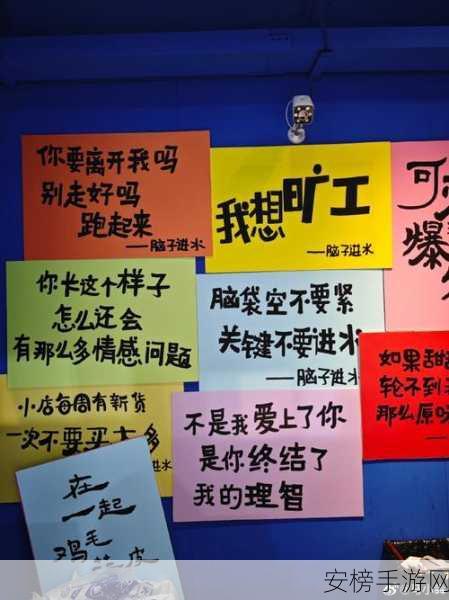 你要离开我吗
别走好吗
跑起来
——脑子进水
我想旷工
——脑子进水
可
爆
你长这个样子
怎么还会
有那么多情感问题
脑袋空不要紧
关键不要进水
——脑子进水
如果甜
轮不到
那么原
小店每周有新货
一次不要买太多
进水
不是我爱上了你
是你终结了
我的理智
在
一起
鸡毛
皮
安榜手游网